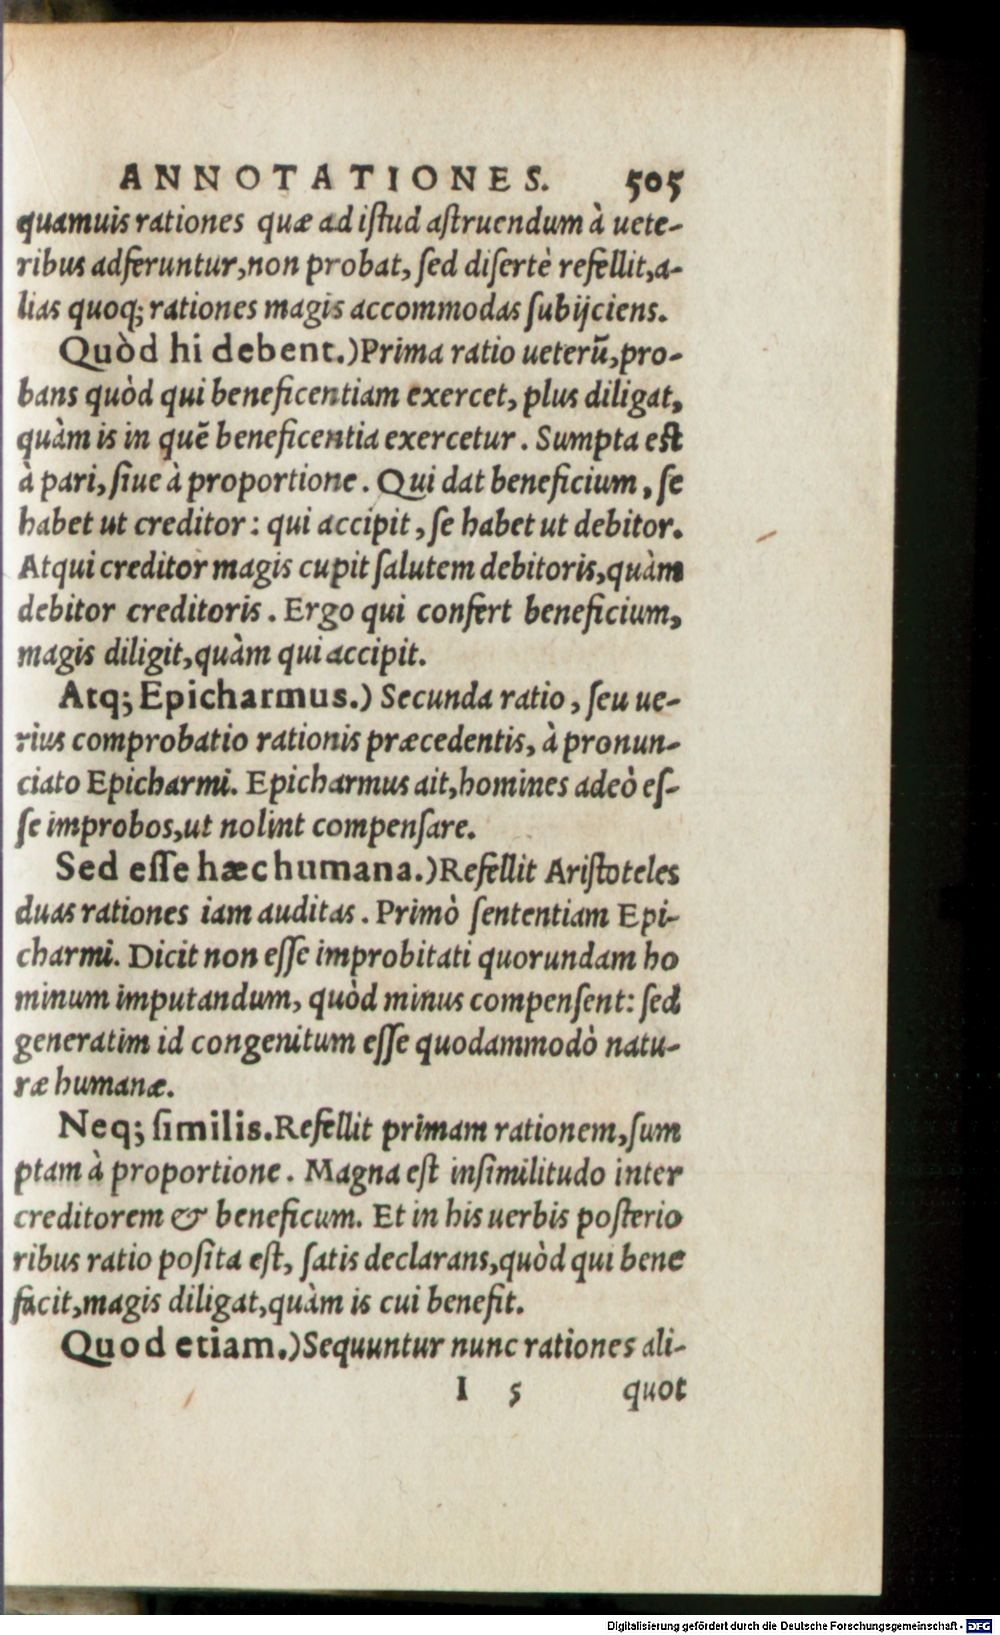 ANNOTATIONES. 505
quamuis rationes quæ ad iſtud aſtruendum à uete-
ribus adferuntur, non probat, ſed diſertè refellit, a-
lias quoq; rationes magis accommodas ſubijciens.
Quòd hi debent.) Prima ratio ueterũ, pro-
bans quòd qui beneficentiam exercet, plus diligat,
quàm is in quẽ beneficentia exercetur. Sumpta eſt
à pari, ſiue à proportione. Qui dat beneficium, ſe
habet ut creditor: qui accipit, ſe habet ut debitor.
Atqui creditor magis cupit ſalutem debitoris, quàm
debitor creditoris. Ergo qui confert beneficium,
magis diligit, quàm qui accipit.
Atq; Epicharmus.) Secunda ratio, ſeu ue-
rius comprobatio rationis præcedentis, à pronun-
ciato Epicharmi. Epicharmus ait, homines adeò eſ-
ſe improbos, ut nolint compenſare.
Sed eſſe hæc humana.) Refellit Ariſtoteles
duas rationes iam auditas. Primò ſententiam Epi-
charmi. Dicit non eſſe improbitati quorundam ho
minum imputandum, quòd minus compenſent: ſed
generatim id congenitum eſſe quodammodò natu-
ræ humanæ.
Neq; ſimilis. Refellit primam rationem, ſum
ptam à proportione. Magna eſt inſimilitudo inter
creditorem & beneficum. Et in his uerbis poſterio
ribus ratio poſita eſt, ſatis declarans, quòd qui bene
facit, magis diligat, quàm is cui benefit.
Quod etiam.) Sequuntur nunc rationes ali-
I 5 quot
Digitalisierung gefördert durch die Deutsche Forschungsgemeinschaft - DFG